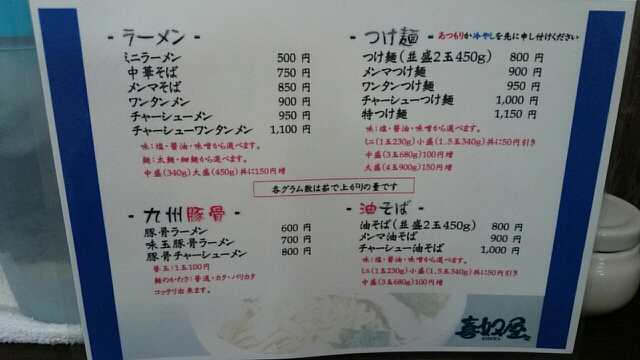 - ラーメン -
ミニラーメン 500 円
中華そば 750 円
メンマそば 850 円
ワンタンメン 900 円
チャーシューメン 950 円
チャーシューワンタンメン 1,100 円
味:塩・醤油・味噌から選べます。
麺:太麺・細麺から選べます。
中盛(340g)大盛(450g)共に150円増
- つけ麺 - あつもりか冷やしを先に申し付けください
つけ麺(並盛2玉450g) 800 円
メンマつけ麺 900 円
ワンタンつけ麺 950 円
チャーシューつけ麺 1,000 円
特つけ麺 1,150 円
味:塩・醤油・味噌から選べます。
ミニ(1玉230g)小盛(1.5玉340g)共に50円引き
中盛(3玉680g)100円増
大盛(4玉900g)150円増
各グラム数は茹で上がりの量です
- 九州豚骨 -
豚骨ラーメン 600 円
味玉豚骨ラーメン 700 円
豚骨チャーシューメン 800 円
替玉:1玉100円
麺のかたさ:普通・カタ・バリカタ
コッテリ出来ます。
- 油そば -
油そば(並盛2玉450g) 800 円
メンマ油そば 900 円
チャーシュー油そば 1,000 円
味:塩・醤油・味噌から選べます。
ミニ(1玉230g)小盛(1.5玉340g)共に50円引き
中盛(3玉680g)100円増
喜如屋